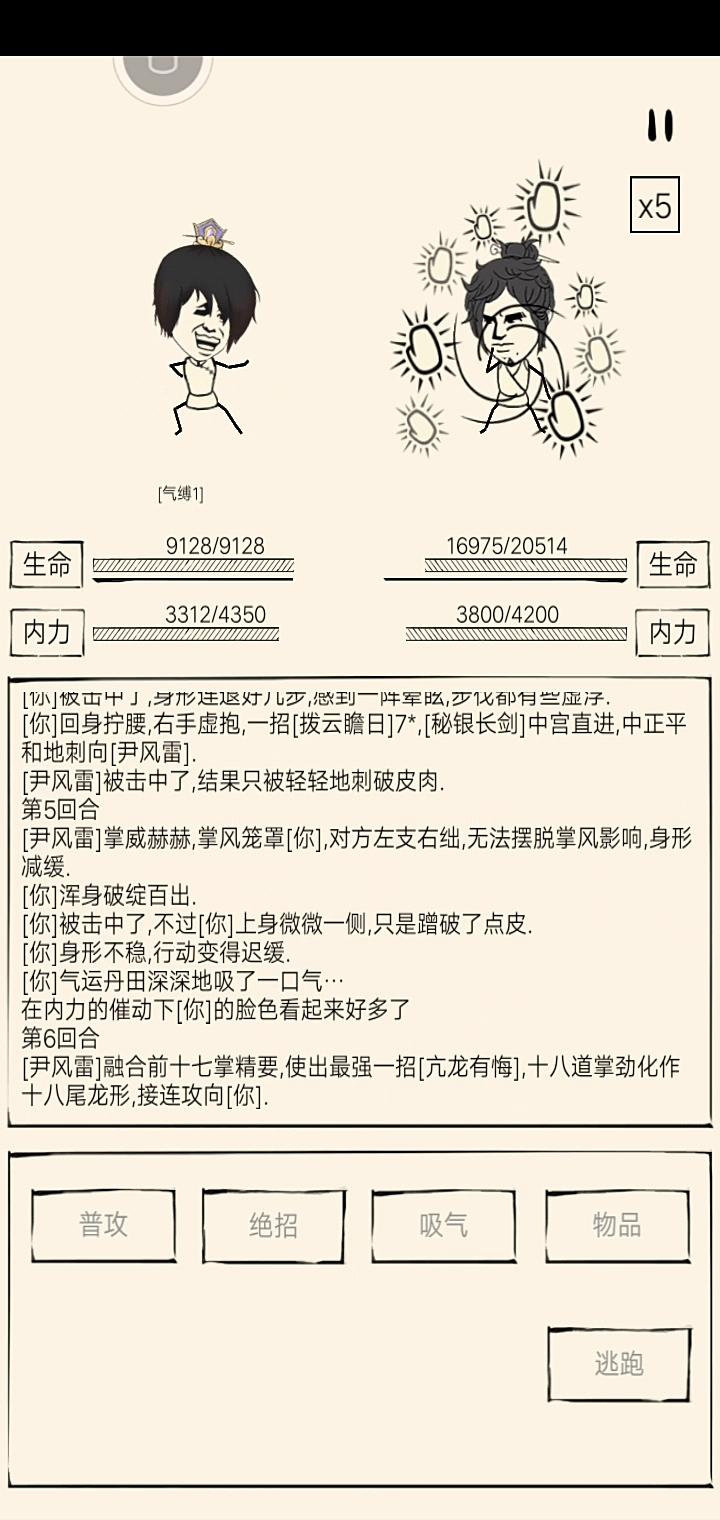 x5
[气缚1]
生命
9128/9128
16975/20514
生命
内力
3312/4350
3800/4200
内力
[你]被击中了,身形连退好几步,感到一阵晕眩,步伐都有些虚浮.
[你]回身拧腰,右手虚抱,一招[拨云瞻日]7*,[秘银长剑]中宫直进,中正平
和地刺向[尹风雷].
[尹风雷]被击中了,结果只被轻轻地刺破皮肉.
第5回合
[尹风雷]掌威赫赫,掌风笼罩[你],对方左支右绌,无法摆脱掌风影响,身形
减缓.
[你]浑身破绽百出.
[你]被击中了,不过[你]上身微微一侧,只是蹭破了点皮.
[你]身形不稳,行动变得迟缓.
[你]气运丹田深深地吸了一口气…
在内力的催动下[你]的脸色看起来好多了
第6回合
[尹风雷]融合前十七掌精要,使出最强一招[亢龙有悔],十八道掌劲化作
十八尾龙形,接连攻向[你].
普攻
绝招
吸气
物品
逃跑